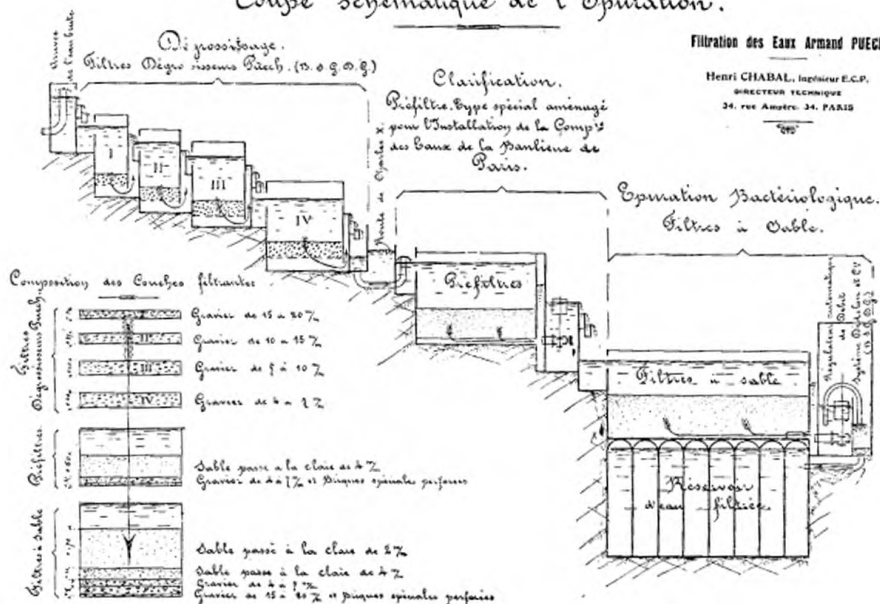 Coupe schématique de l'Epuration.
Filtration des Eaux Armand PUECH
Henri CHABAL, Ingénieur E.C.P.
DIRECTEUR TECHNIQUE
34, rue Ampère, 34, PARIS
de l'eau brute
Dégrossissage.
Filtres Dégrossisseurs Puech. (B.S.G.D.G.)
Clarification.
Préfiltre. Type spécial aménagé
pour l'Installation de la Comp.
des Eaux de la Banlieue de
Paris.
Route de Charles X.
Epuration Bactériologique.
Filtres à Sable.
I
II
III
IV
Préfiltres
Filtres à sable
Réservoir
d'eau filtrée
Régulateur automatique
de Débit
Système
(B.S.G.D.G.)
Composition des Couches filtrantes
Filtres
Dégrossisseurs Puech.
I
II
III
IV
Gravier de 15 à 20 %
Gravier de 10 à 15 %
Gravier de 5 à 10 %
Gravier de 4 à
Préfiltres
Sable passé à la claie de 4 %
Gravier de 4 à 7 % et Briques spéciales perforées
Filtres à sable
Sable passé à la claie de 2 %
Sable passé à la claie de 4 %
Gravier de 4 à 7 %
Gravier de 15 à 20 % et Briques spéciales perforées